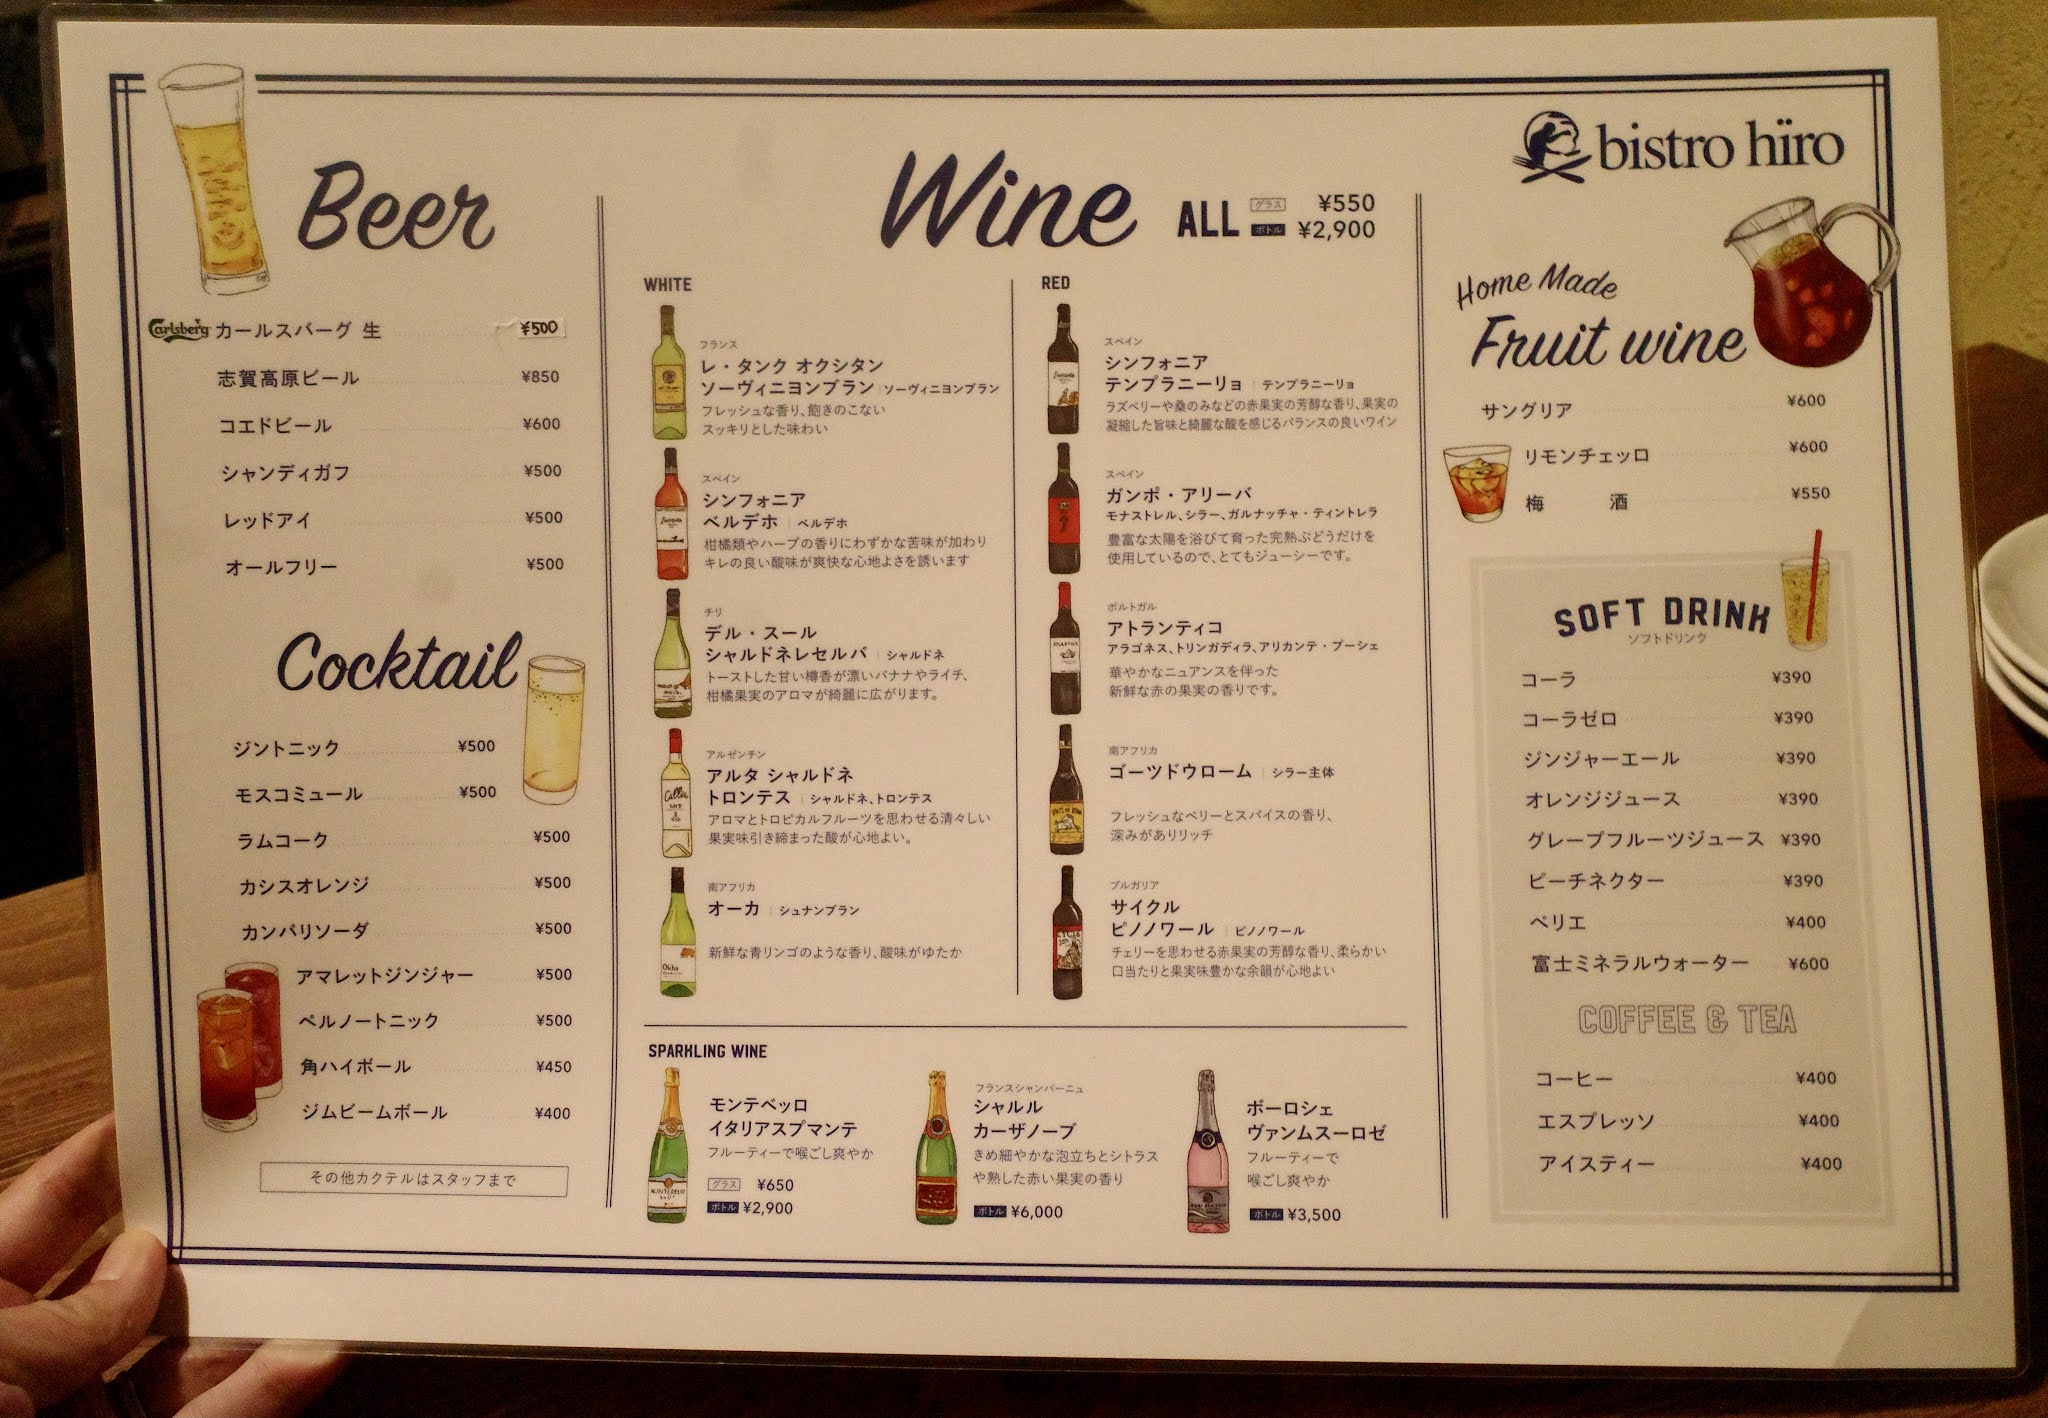 Beer
Carlsberg カールスバーグ 生 ¥500
志賀高原ビール ¥850
コエドビール ¥600
シャンディガフ ¥500
レッドアイ ¥500
オールフリー ¥500
Cocktail
ジントニック ¥500
モスコミュール ¥500
ラムコーク ¥500
カシスオレンジ ¥500
カンパリソーダ ¥500
アマレットジンジャー ¥500
ペルノートニック ¥500
角ハイボール ¥450
ジムビームボール ¥400
その他カクテルはスタッフまで
Wine ALL
グラス ¥550
ボトル ¥2,900
WHITE
フランス
レ・タンク オクシタン
ソーヴィニヨンブラン | ソーヴィニヨンブラン
フレッシュな香り、飽きのこない
スッキリとした味わい
スペイン
シンフォニア
ベルデホ | ベルデホ
柑橘類やハーブの香りにわずかな苦味が加わり
キレの良い酸味が爽快な心地よさを誘います
チリ
デル・スール
シャルドネレセルバ | シャルドネ
トーストした甘い樽香が漂いバナナやライチ、
柑橘果実のアロマが綺麗に広がります。
アルゼンチン
アルタ シャルドネ
トロンテス | シャルドネ、トロンテス
アロマとトロピカルフルーツを思わせる清々しい
果実味引き締まった酸が心地よい。
南アフリカ
オーカ | シュナンブラン
新鮮な青リンゴのような香り、酸味がゆたか
RED
スペイン
シンフォニア
テンプラニーリョ | テンプラニーリョ
ラズベリーや桑のみなどの赤果実の芳醇な香り、果実の
凝縮した旨味と綺麗な酸を感じるバランスの良いワイン
スペイン
ガンポ・アリーバ
モナストレル、シラー、ガルナッチャ・ティントレラ
豊富な太陽を浴びて育った完熟ぶどうだけを
使用しているので、とてもジューシーです。
ポルトガル
アトランティコ
アラゴネス、トリンガディラ、アリカンテ・ブーシェ
華やかなニュアンスを伴った
新鮮な赤の果実の香りです。
南アフリカ
ゴーツドウローム | シラー主体
フレッシュなベリーとスパイスの香り、
深みがありリッチ
ブルガリア
サイクル
ピノノワール | ピノノワール
チェリーを思わせる赤果実の芳醇な香り、柔らかい
口当たりと果実味豊かな余韻が心地よい
SPARKLING WINE
モンテベッロ
イタリアスプマンテ
フルーティーで喉ごし爽やか
グラス ¥650
ボトル ¥2,900
フランスシャンパーニュ
シャルル
カーザノーブ
きめ細やかな泡立ちとシトラス
や熟した赤い果実の香り
ボトル ¥6,000
ボーロシェ
ヴァンムスーロゼ
フルーティーで
喉ごし爽やか
ボトル ¥3,500
bistro hïro
Home Made
Fruit wine
サングリア ¥600
リモンチェッロ ¥600
梅 酒 ¥550
SOFT DRINK
ソフトドリンク
コーラ ¥390
コーラゼロ ¥390
ジンジャーエール ¥390
オレンジジュース ¥390
グレープフルーツジュース ¥390
ピーチネクター ¥390
ペリエ ¥400
富士ミネラルウォーター ¥600
COFFEE & TEA
コーヒー ¥400
エスプレッソ ¥400
アイスティー ¥400